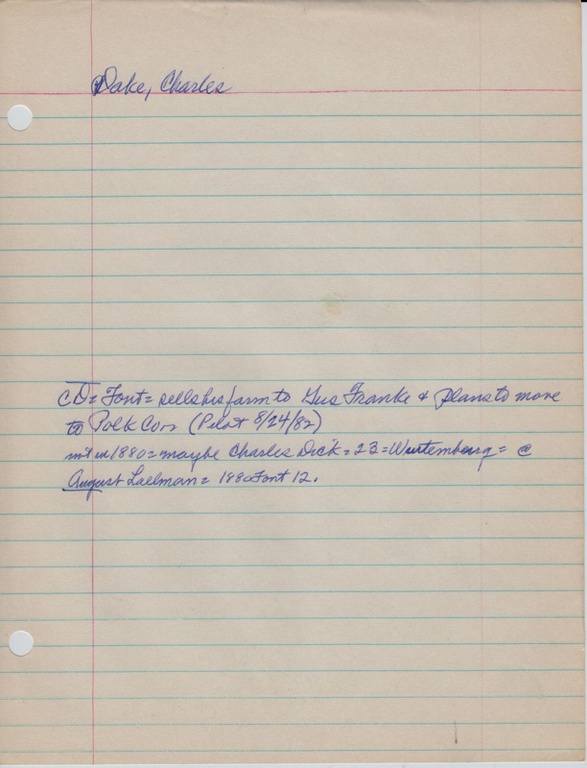 Dake, Charles
CD = Font = sells his farm to Gus Franke & plans to move
to Polk Co = (Pilot 8/24/82)
not in 1880 = maybe Charles Dick = 23 = Wurtemburg = @
August Laelman = 1880 Font 12.